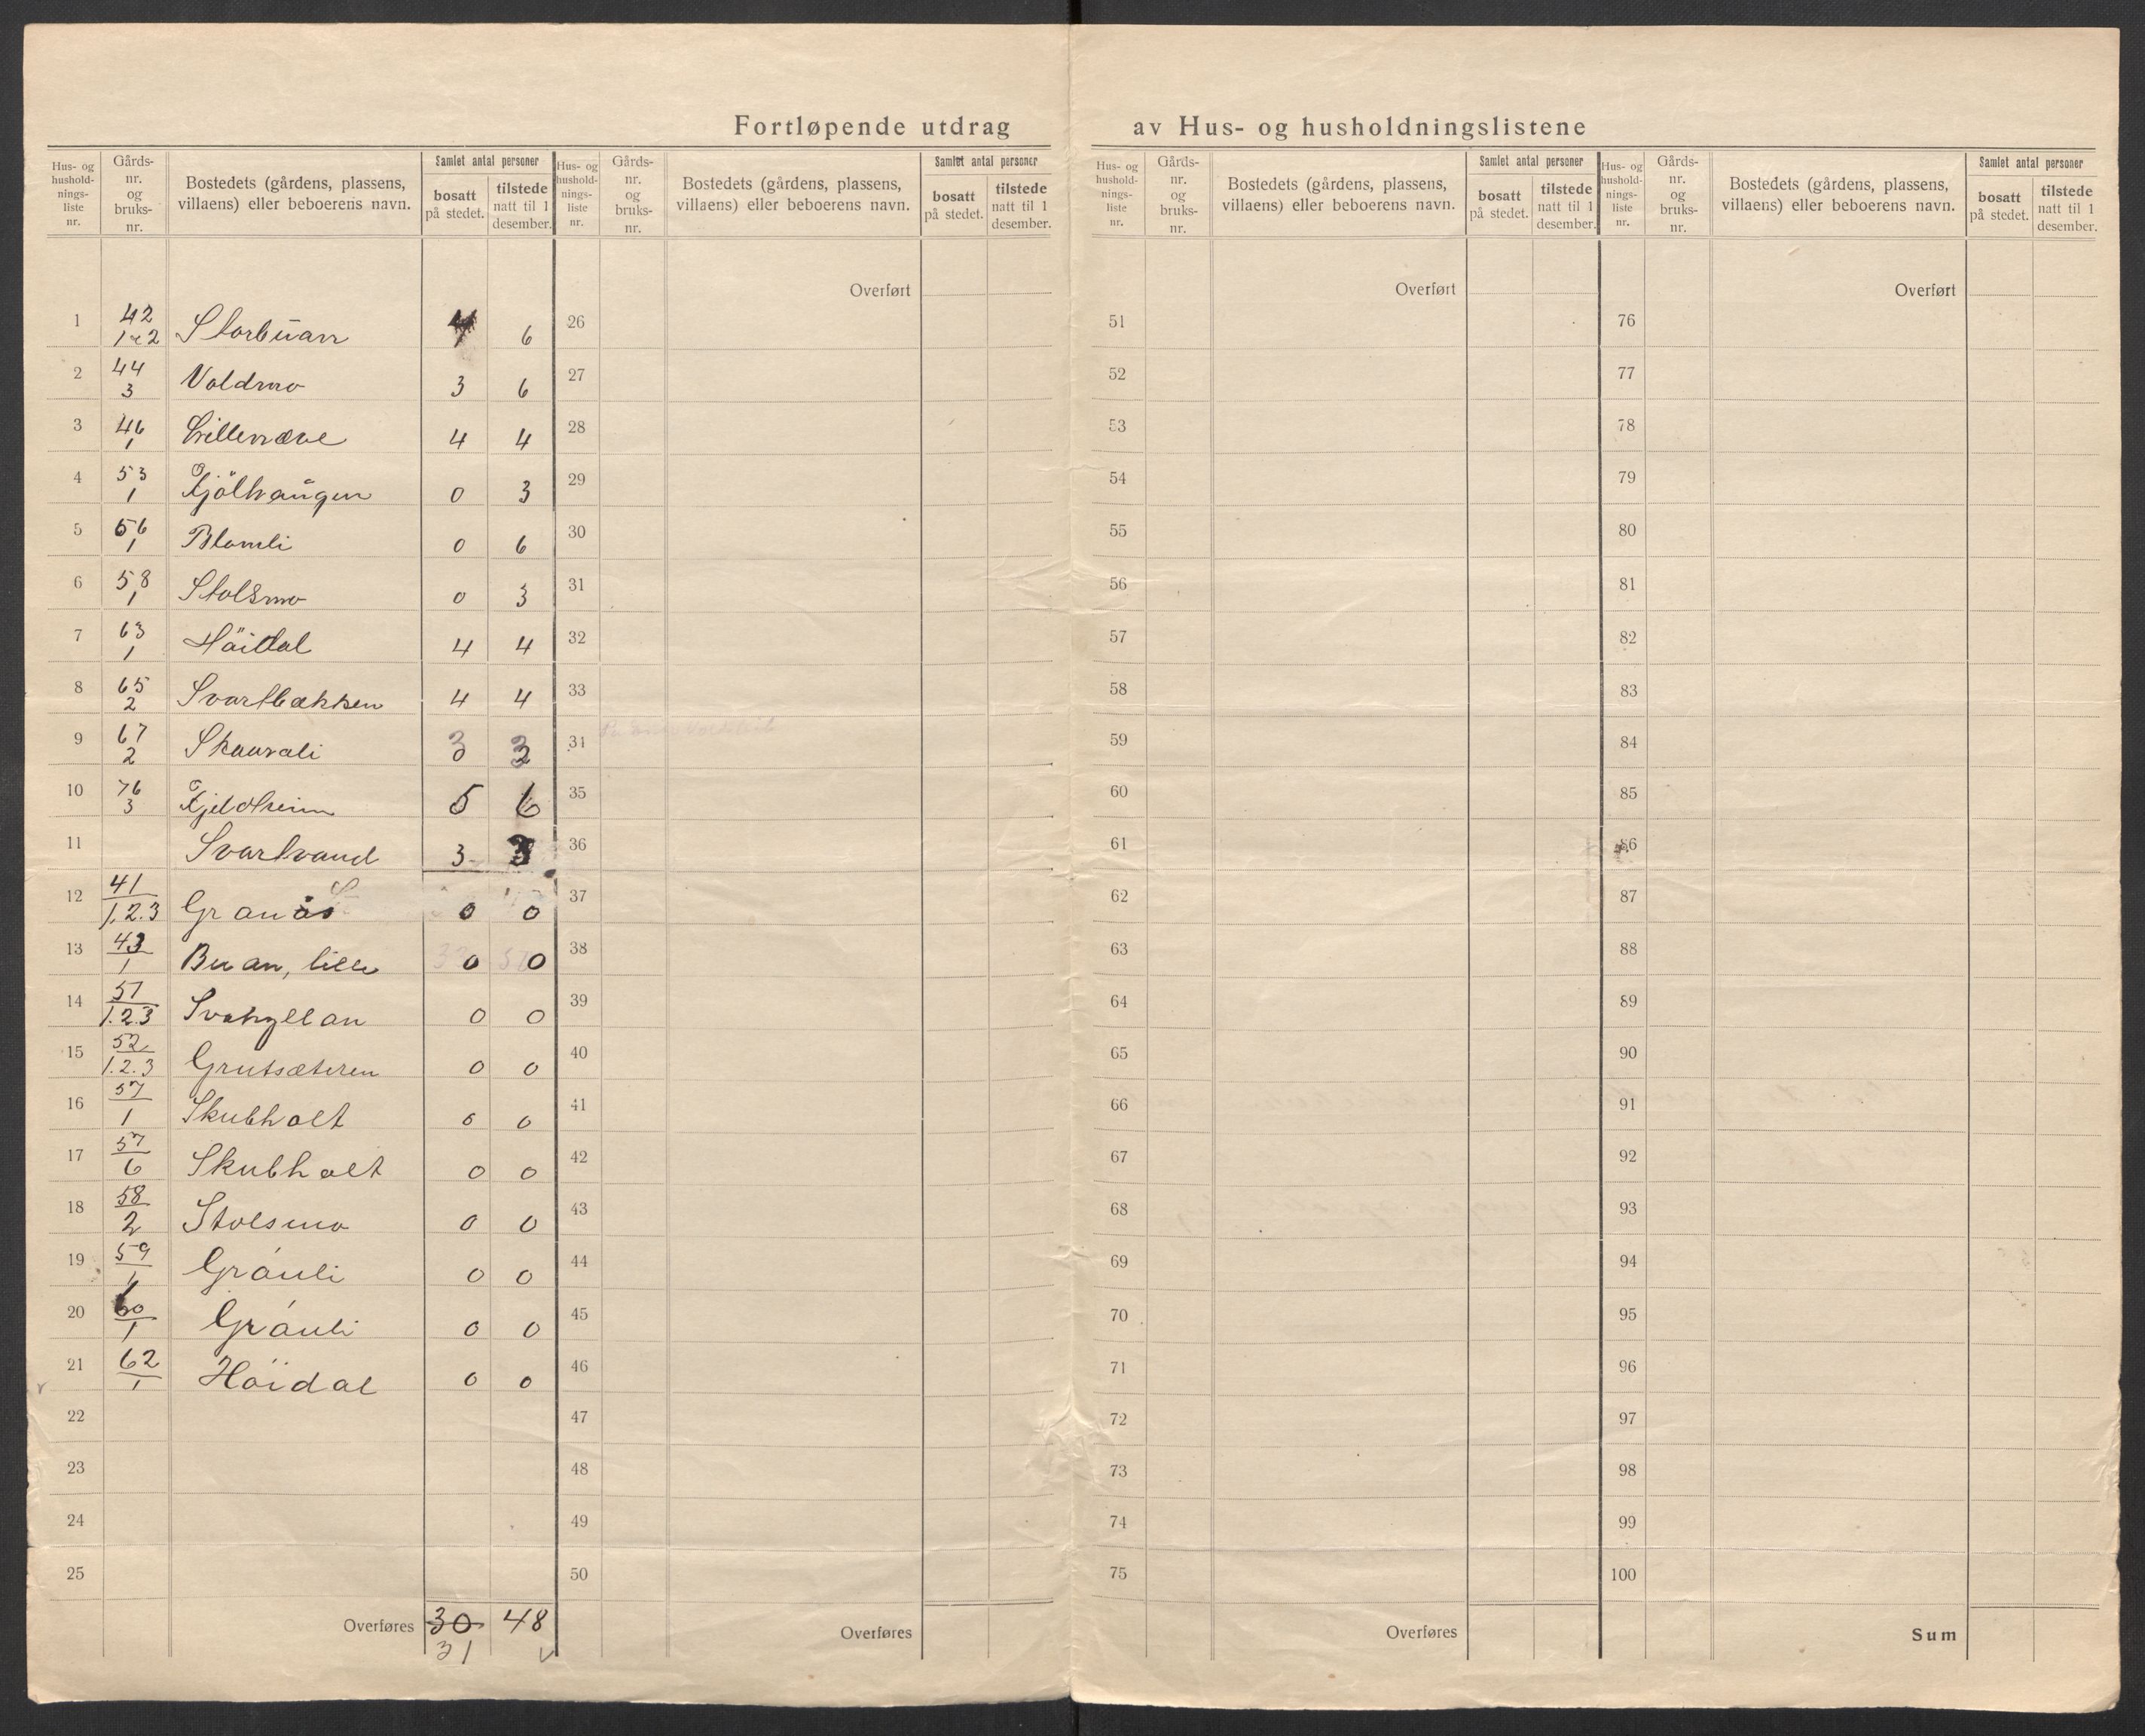 Fortløpende utdrag av Hus- og husholdningslistene
Hus- og hushold-nings-liste nr. | Gårds-nr. og bruks-nr. | Bostedets (gårdens, plassens, villaens) eller beboerens navn. | Samlet antal personer | bosatt på stedet. | tilstede natt til 1 desember.
1 | 42 1 2 | Storbuan | 6
2 | 44 3 | Voldmo | 3 | 6
3 | 46 1 | Lillevæve | 4 | 4
4 | 53 1 | Kjölhaugen | 0 | 3
5 | 56 1 | Blomli | 0 | 6
6 | 58 1 | Stolsmo | 0 | 3
7 | 63 1 | Höidal | 4 | 4
8 | 65 2 | Svartbækken | 4 | 4
9 | 67 2 | Skaurali | 3 | 3
10 | 76 3 | Kjeldheim | 5 | 6
11 | Svartvand | 3 | 3
12 | 41 1.2.3 | Granås | 0 | 0
13 | 43 1 | Buan, lille | 0 | 0
14 | 51 1.2.3 | Svahyllan | 0 | 0
15 | 52 1.2.3 | Grutsæteren | 0 | 0
16 | 57 1 | Skubholt | 0 | 0
17 | 57 6 | Skubholt | 0 | 0
18 | 58 2 | Stolsmo | 0 | 0
19 | 59 1 | Gråuli | 0 | 0
20 | 60 1 | Gråuli | 0 | 0
21 | 62 1 | Höidal | 0 | 0
22
23
24
25
Overføres | 30 | 48
31
Hus- og hushold-nings-liste nr. | Gårds-nr. og bruks-nr. | Bostedets (gårdens, plassens, villaens) eller beboerens navn. | Samlet antal personer | bosatt på stedet. | tilstede natt til 1 desember.
Overført
26
27
28
29
30
31
32
33
34
35
36
37
38
39
40
41
42
43
44
45
46
47
48
49
50
Overføres
Hus- og hushold-nings-liste nr. | Gårds-nr. og bruks-nr. | Bostedets (gårdens, plassens, villaens) eller beboerens navn. | Samlet antal personer | bosatt på stedet. | tilstede natt til 1 desember.
Overført
51
52
53
54
55
56
57
58
59
60
61
62
63
64
65
66
67
68
69
70
71
72
73
74
75
Overføres
Hus- og hushold-nings-liste nr. | Gårds-nr. og bruks-nr. | Bostedets (gårdens, plassens, villaens) eller beboerens navn. | Samlet antal personer | bosatt på stedet. | tilstede natt til 1 desember.
Overført
76
77
78
79
80
81
82
83
84
85
86
87
88
89
90
91
92
93
94
95
96
97
98
99
100
Sum